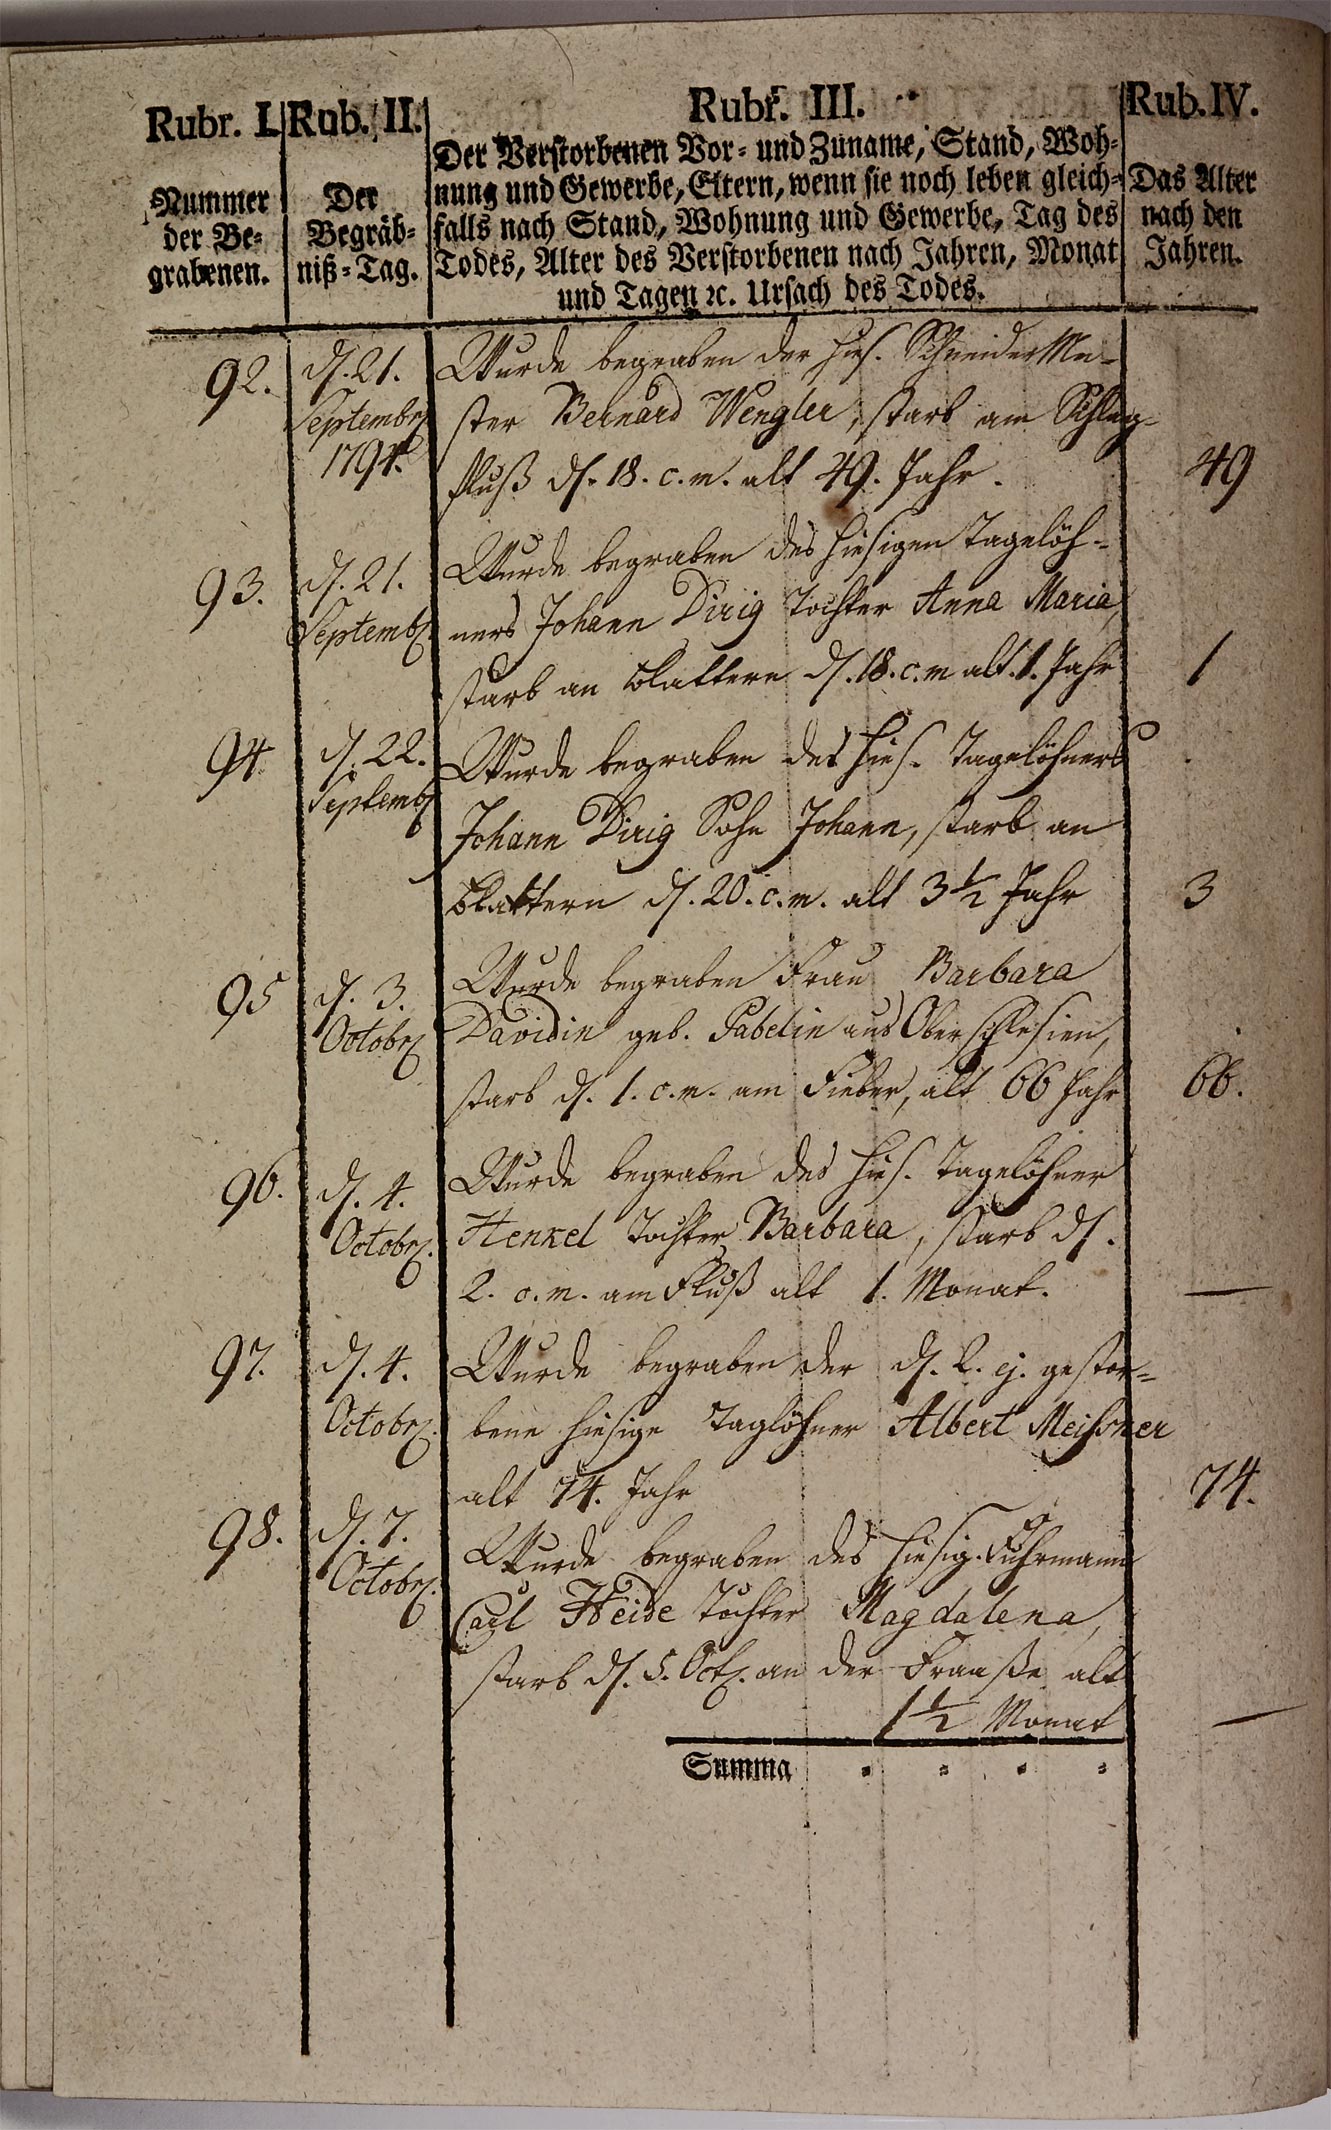 Rubr. I.
Nummer
der Be-
grabenen.
Rub. II.
Der
Begräb-
niß-Tag.
Rubr. III.
Der Verstorbenen Vor- und Zuname, Stand, Woh-
nung und Gewerbe, Eltern, wenn sie noch leben gleich-
falls nach Stand, Wohnung und Gewerbe, Tag des
Todes, Alter des Verstorbenen nach Jahren, Monat
und Tagen ꝛc. Ursach des Todes.
Rub. IV.
Das Alter
nach den
Jahren.
92.
d. 21.
Septembr
1794.
Wurde begraben der hies. Schneider Mei-
ster Bernard Wengler, starb am Schlag-
fluß d. 18. c. m. alt 49. Jahr.
49
93.
d. 21.
Septemb.
Wurde begraben des hiesigen Tagelöh-
ners Johann Dirig Tochter Anna Maria,
starb an Blattern d. 18. c. m alt. 1. Jahr
1
94
d. 22.
Septemb
Wurde begraben des hies. Tagelöhners
Johann Dirig Sohn Johann, starb an
Blattern d. 20. c. m. alt 3 1/2 Jahr
3
95
d. 3.
Octobr
Wurde begraben Frau Barbara
Davidin geb. Pabelin aus Oberschlesien,
starb d. 1. c. m. am Fieber, alt 66 Jahr
66.
96.
d. 4.
Octobr.
Wurde begraben des hies. Tagelöhner
Henkel Tochter Barbara, starb d.
2. c. m. am Fluß alt 1. Monat.
—
97.
d. 4.
Octobr.
Wurde begraben der d. 2. ej. gestor-
bene hiesige Taglöhner Albert Meissner
alt 74. Jahr
74.
98.
d. 7.
Octobr.
Wurde begraben des hiesig. Fuhrmann
Carl Heide Tochter Magdalena,
starb d. 5. Oct. an der Fraaße alt
1 1/2 Monat
—
Summa